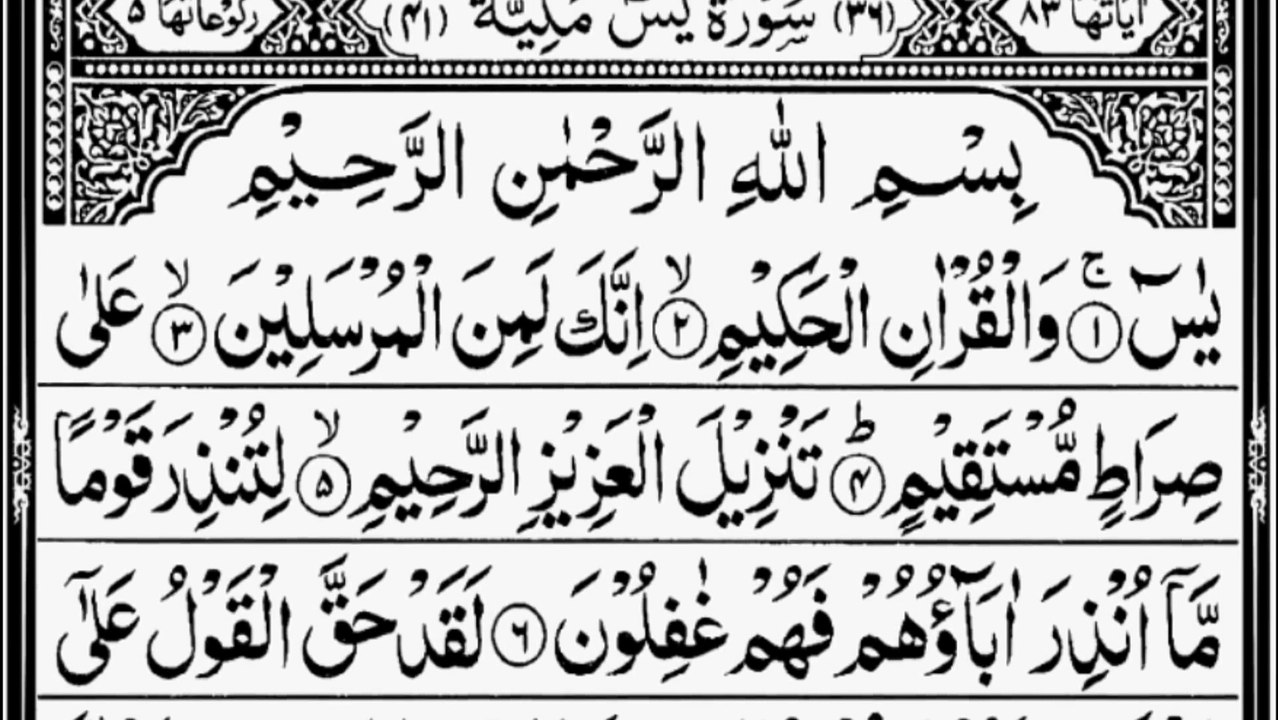 اٰيَاتُهَا ٨٣ (٣٦) سُوْرَةُ يٰسٓ مَكِّيَّةٌ (٤١) رُكُوْعَاتُهَا ٥
بِسْمِ اللّٰهِ الرَّحْمٰنِ الرَّحِيْمِ
يٰسٓ ۚ ﴿۱﴾ وَالْقُرْاٰنِ الْحَكِيْمِ ۙ ﴿۲﴾ اِنَّكَ لَمِنَ الْمُرْسَلِيْنَ ۙ ﴿۳﴾ عَلٰى
صِرَاطٍ مُّسْتَقِيْمٍ ؕ ﴿۴﴾ تَنْزِيْلَ الْعَزِيْزِ الرَّحِيْمِ ۙ ﴿۵﴾ لِتُنْذِرَ قَوْمًا
مَّاۤ اُنْذِرَ اٰبَآؤُهُمْ فَهُمْ غٰفِلُوْنَ ﴿۶﴾ لَقَدْ حَقَّ الْقَوْلُ عَلٰٓى